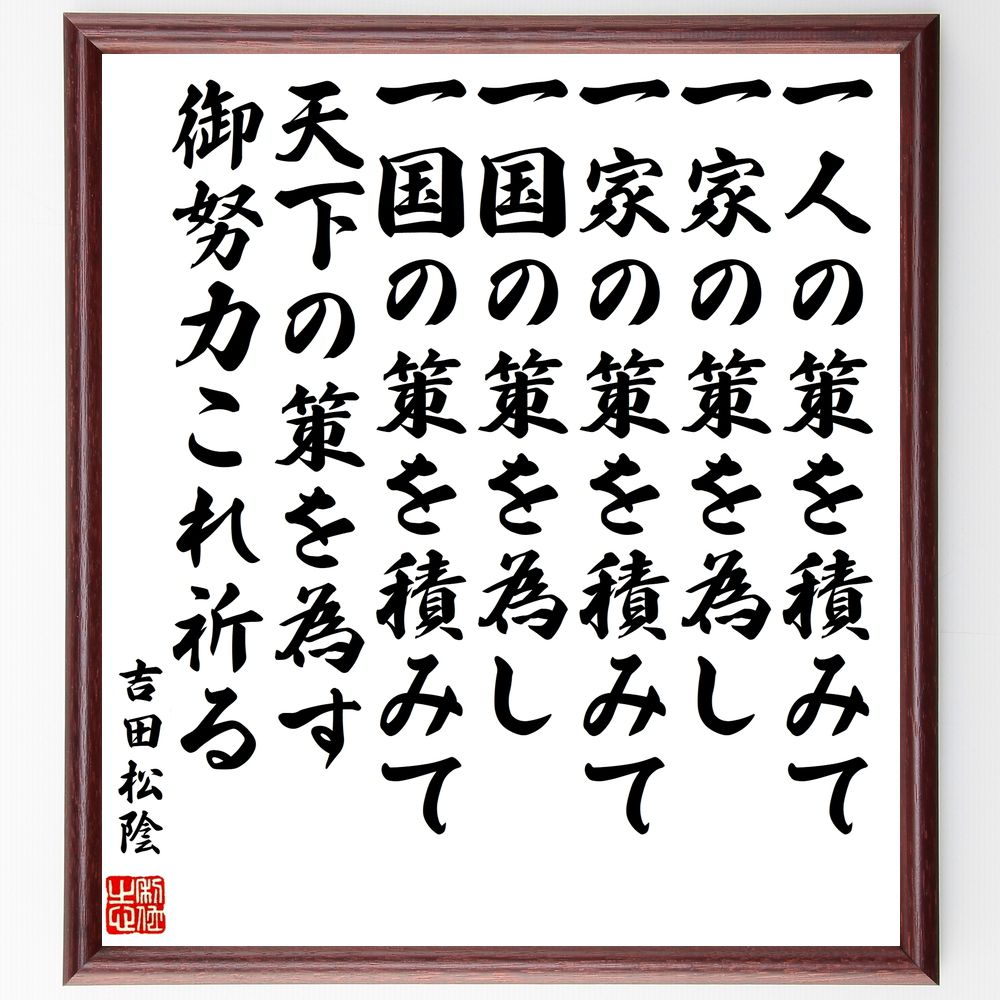 一人の策を積みて
一家の策を為し
一家の策を積みて
一国の策を為し
一国の策を積みて
天下の策を為す
御努力これ祈る
吉田松陰